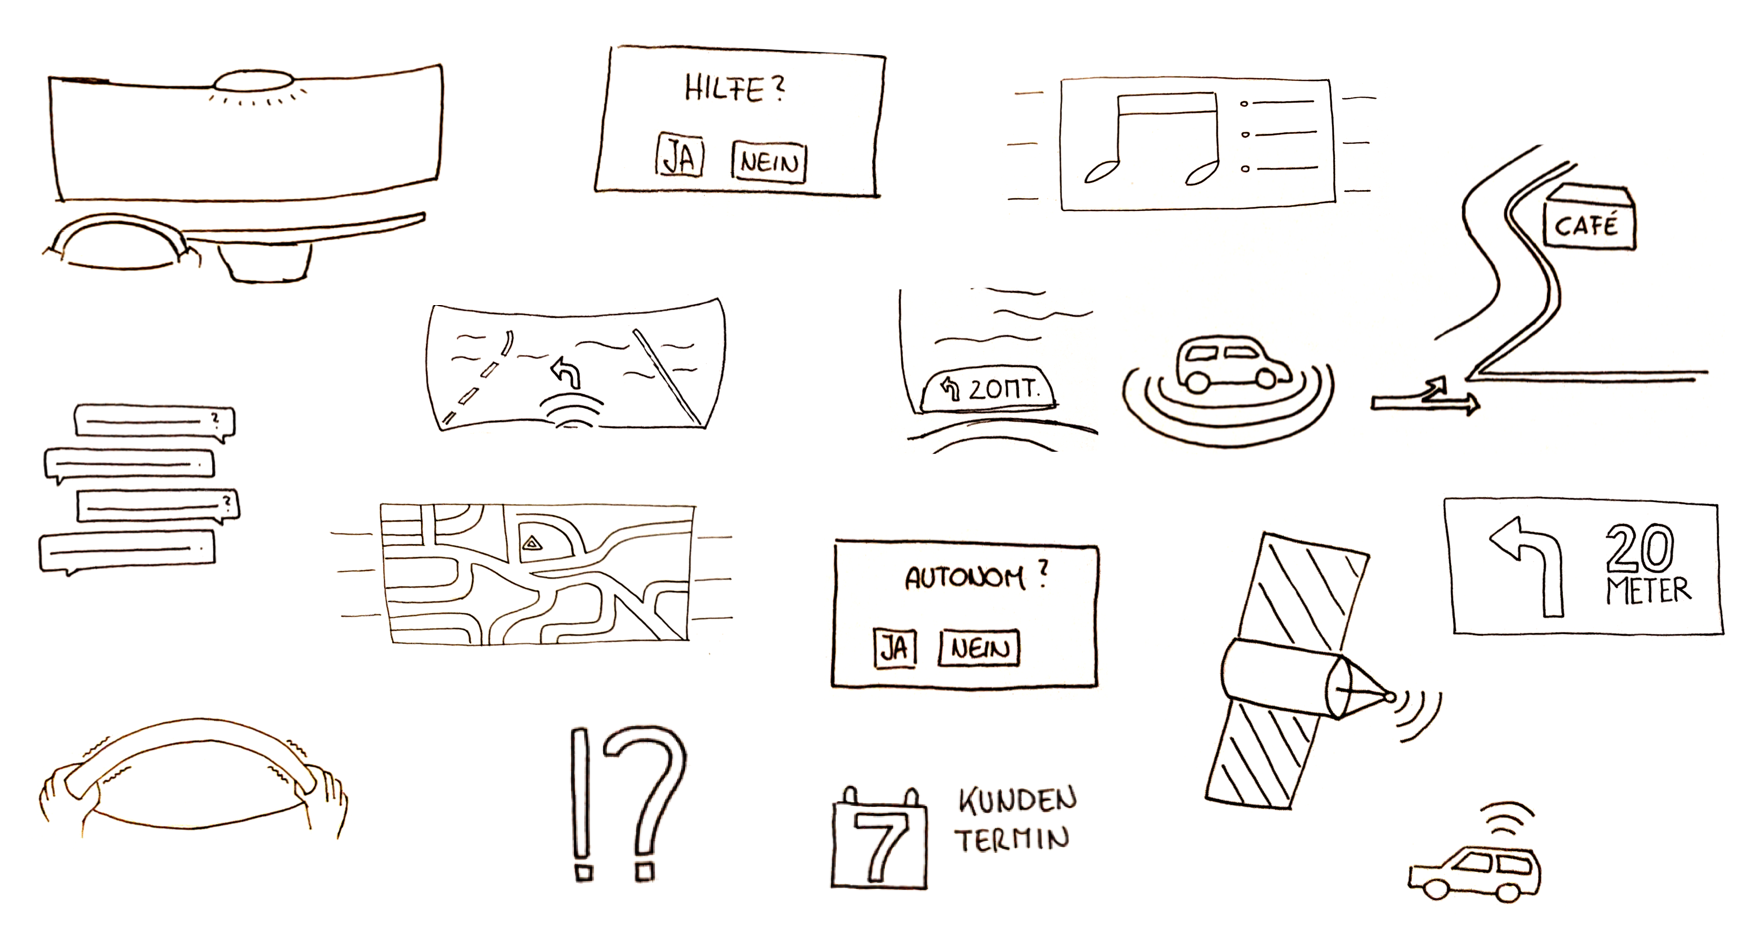 HILFE?
JA NEIN
CAFÉ
20MT.
?
?
AUTONOM?
JA NEIN
20
METER
!?
7
KUNDEN
TERMIN